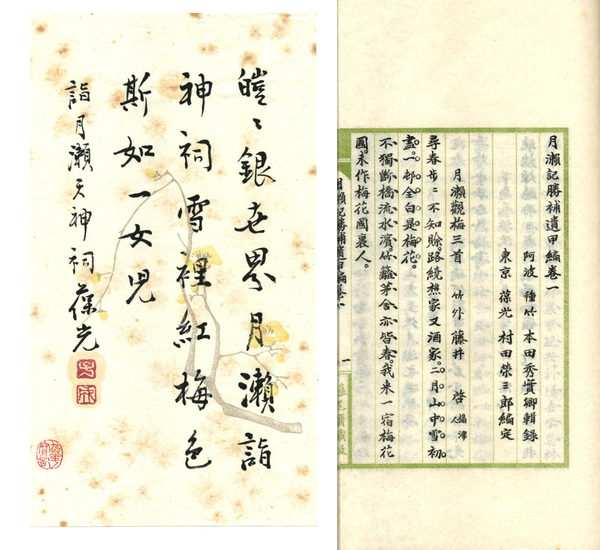 皚〻銀世界月瀬詣
神祠雪裡紅梅色
斯如一女児
詣月瀬天神祠 葆光
月瀬記勝補遺甲編卷一
阿波 種竹 本田秀實卿輯錄
東京 葆光 村田榮三郎編定
月瀬觀梅三首 竹外 藤井 啓 攝津人
尋春步〻不知賒。路繞樵家又酒家。二月山中雪初
盡。一邨全白是梅花。
不獨斷橋流水濱。竹籬茅舍亦皆春。我來一宿梅花
國。未作梅花國裏人。
月瀬記勝補遺甲編卷一
一